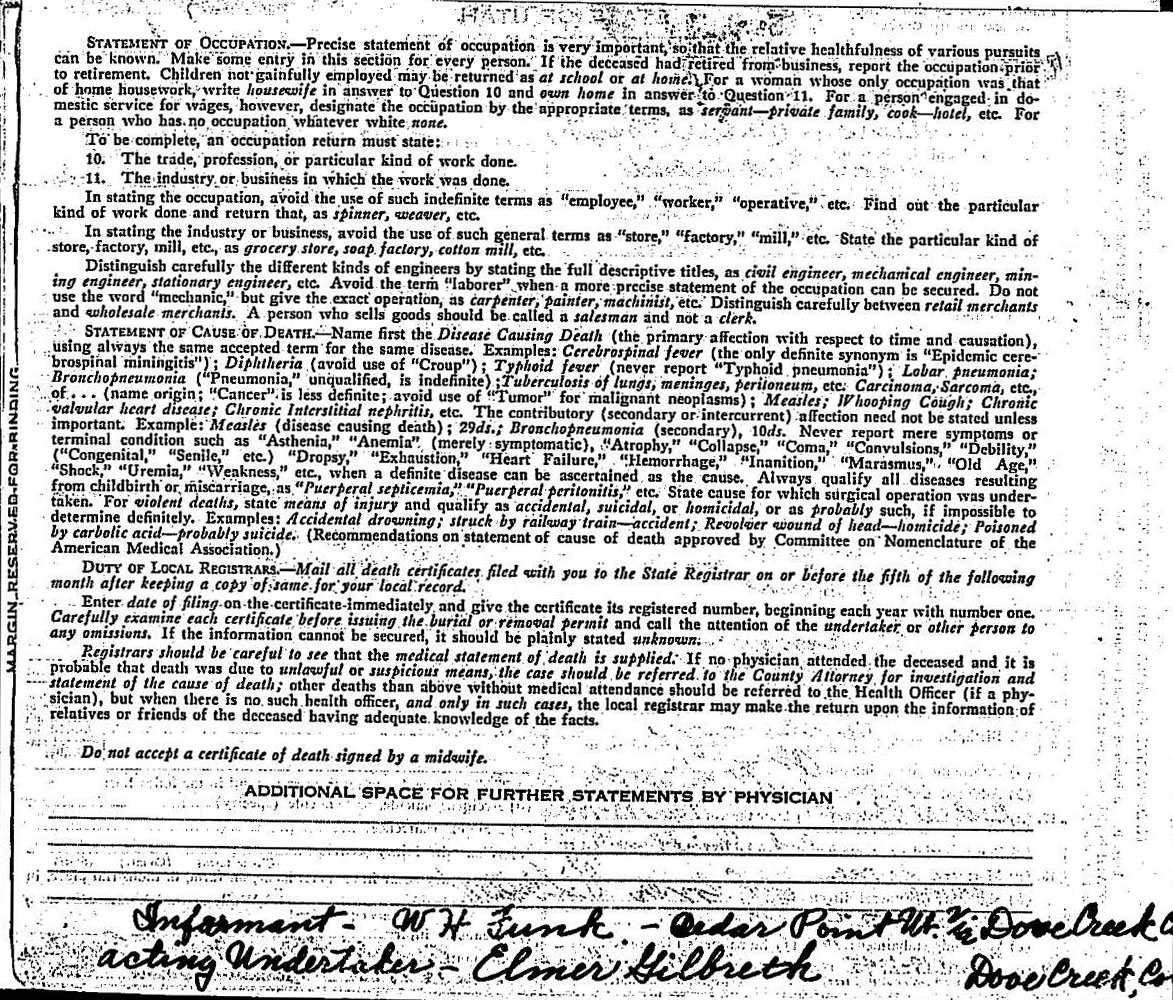 STATE OF UTAH
STATEMENT OF OCCUPATION.—Precise statement of occupation is very important, so that the relative healthfulness of various pursuits
can be known. Make some entry in this section for every person. If the deceased had retired from business, report the occupation prior
to retirement. Children not gainfully employed may be returned as at school or at home. For a woman whose only occupation was that
of home housework, write housewife in answer to Question 10 and own home in answer to Question 11. For a person engaged in do-
mestic service for wages, however, designate the occupation by the appropriate terms, as servant—private family, cook—hotel, etc. For
a person who has no occupation whatever white none.
To be complete, an occupation return must state:
10. The trade, profession, or particular kind of work done.
11. The industry or business in which the work was done.
In stating the occupation, avoid the use of such indefinite terms as "employee," "worker," "operative," etc. Find out the particular
kind of work done and return that, as spinner, weaver, etc.
In stating the industry or business, avoid the use of such general terms as "store," "factory," "mill," etc. State the particular kind of
store, factory, mill, etc., as grocery store, soap factory, cotton mill, etc.
Distinguish carefully the different kinds of engineers by stating the full descriptive titles, as civil engineer, mechanical engineer, min-
ing engineer, stationary engineer, etc. Avoid the term "laborer" when a more precise statement of the occupation can be secured. Do not
use the word "mechanic," but give the exact operation, as carpenter, painter, machinist, etc. Distinguish carefully between retail merchants
and wholesale merchants. A person who sells goods should be called a salesman and not a clerk.
STATEMENT OF CAUSE OF DEATH.—Name first the Disease Causing Death (the primary affection with respect to time and causation),
using always the same accepted term for the same disease. Examples: Cerebrospinal fever (the only definite synonym is "Epidemic cere-
brospinal miningitis"); Diphtheria (avoid use of "Croup"); Typhoid fever (never report "Typhoid pneumonia"); Lobar pneumonia;
Bronchopneumonia ("Pneumonia," unqualified, is indefinite); Tuberculosis of lungs, meninges, peritoneum, etc. Carcinoma, Sarcoma, etc.,
of . . . (name origin; "Cancer" is less definite; avoid use of "Tumor" for malignant neoplasms); Measles; Whooping Cough; Chronic
valvular heart disease; Chronic Interstitial nephritis, etc. The contributory (secondary or intercurrent) affection need not be stated unless
important. Example: Measles (disease causing death); 29ds.; Bronchopneumonia (secondary), 10ds. Never report mere symptoms or
terminal condition such as "Asthenia," "Anemia" (merely symptomatic), "Atrophy," "Collapse," "Coma," "Convulsions," "Debility,"
("Congenital," "Senile," etc.) "Dropsy," "Exhaustion," "Heart Failure," "Hemorrhage," "Inanition," "Marasmus," "Old Age,"
"Shock," "Uremia," "Weakness," etc., when a definite disease can be ascertained as the cause. Always qualify all diseases resulting
from childbirth or miscarriage, as "Puerperal septicemia," "Puerperal peritonitis," etc. State cause for which surgical operation was under-
taken. For violent deaths, state means of injury and qualify as accidental, suicidal, or homicidal, or as probably such, if impossible to
determine definitely. Examples: Accidental drowning; struck by railway train—accident; Revolver wound of head—homicide; Poisoned
by carbolic acid—probably suicide. (Recommendations on statement of cause of death approved by Committee on Nomenclature of the
American Medical Association.)
DUTY OF LOCAL REGISTRARS.—Mail all death certificates filed with you to the State Registrar on or before the fifth of the following
month after keeping a copy of same for your local record.
Enter date of filing on the certificate immediately and give the certificate its registered number, beginning each year with number one.
Carefully examine each certificate before issuing the burial or removal permit and call the attention of the undertaker or other person to
any omissions. If the information cannot be secured, it should be plainly stated unknown.
Registrars should be careful to see that the medical statement of death is supplied. If no physician attended the deceased and it is
probable that death was due to unlawful or suspicious means, the case should be referred to the County Attorney for investigation and
statement of the cause of death; other deaths than above without medical attendance should be referred to the Health Officer (if a phy-
sician), but when there is no such health officer, and only in such cases, the local registrar may make the return upon the information of
relatives or friends of the deceased having adequate knowledge of the facts.
Do not accept a certificate of death signed by a midwife.
ADDITIONAL SPACE FOR FURTHER STATEMENTS BY PHYSICIAN
Informant - W H Funk. - Cedar Point Ut. Dove Creek
acting Undertaker - Elmer Gilbreth Dove Creek, Co
MARGIN RESERVED FOR BINDING